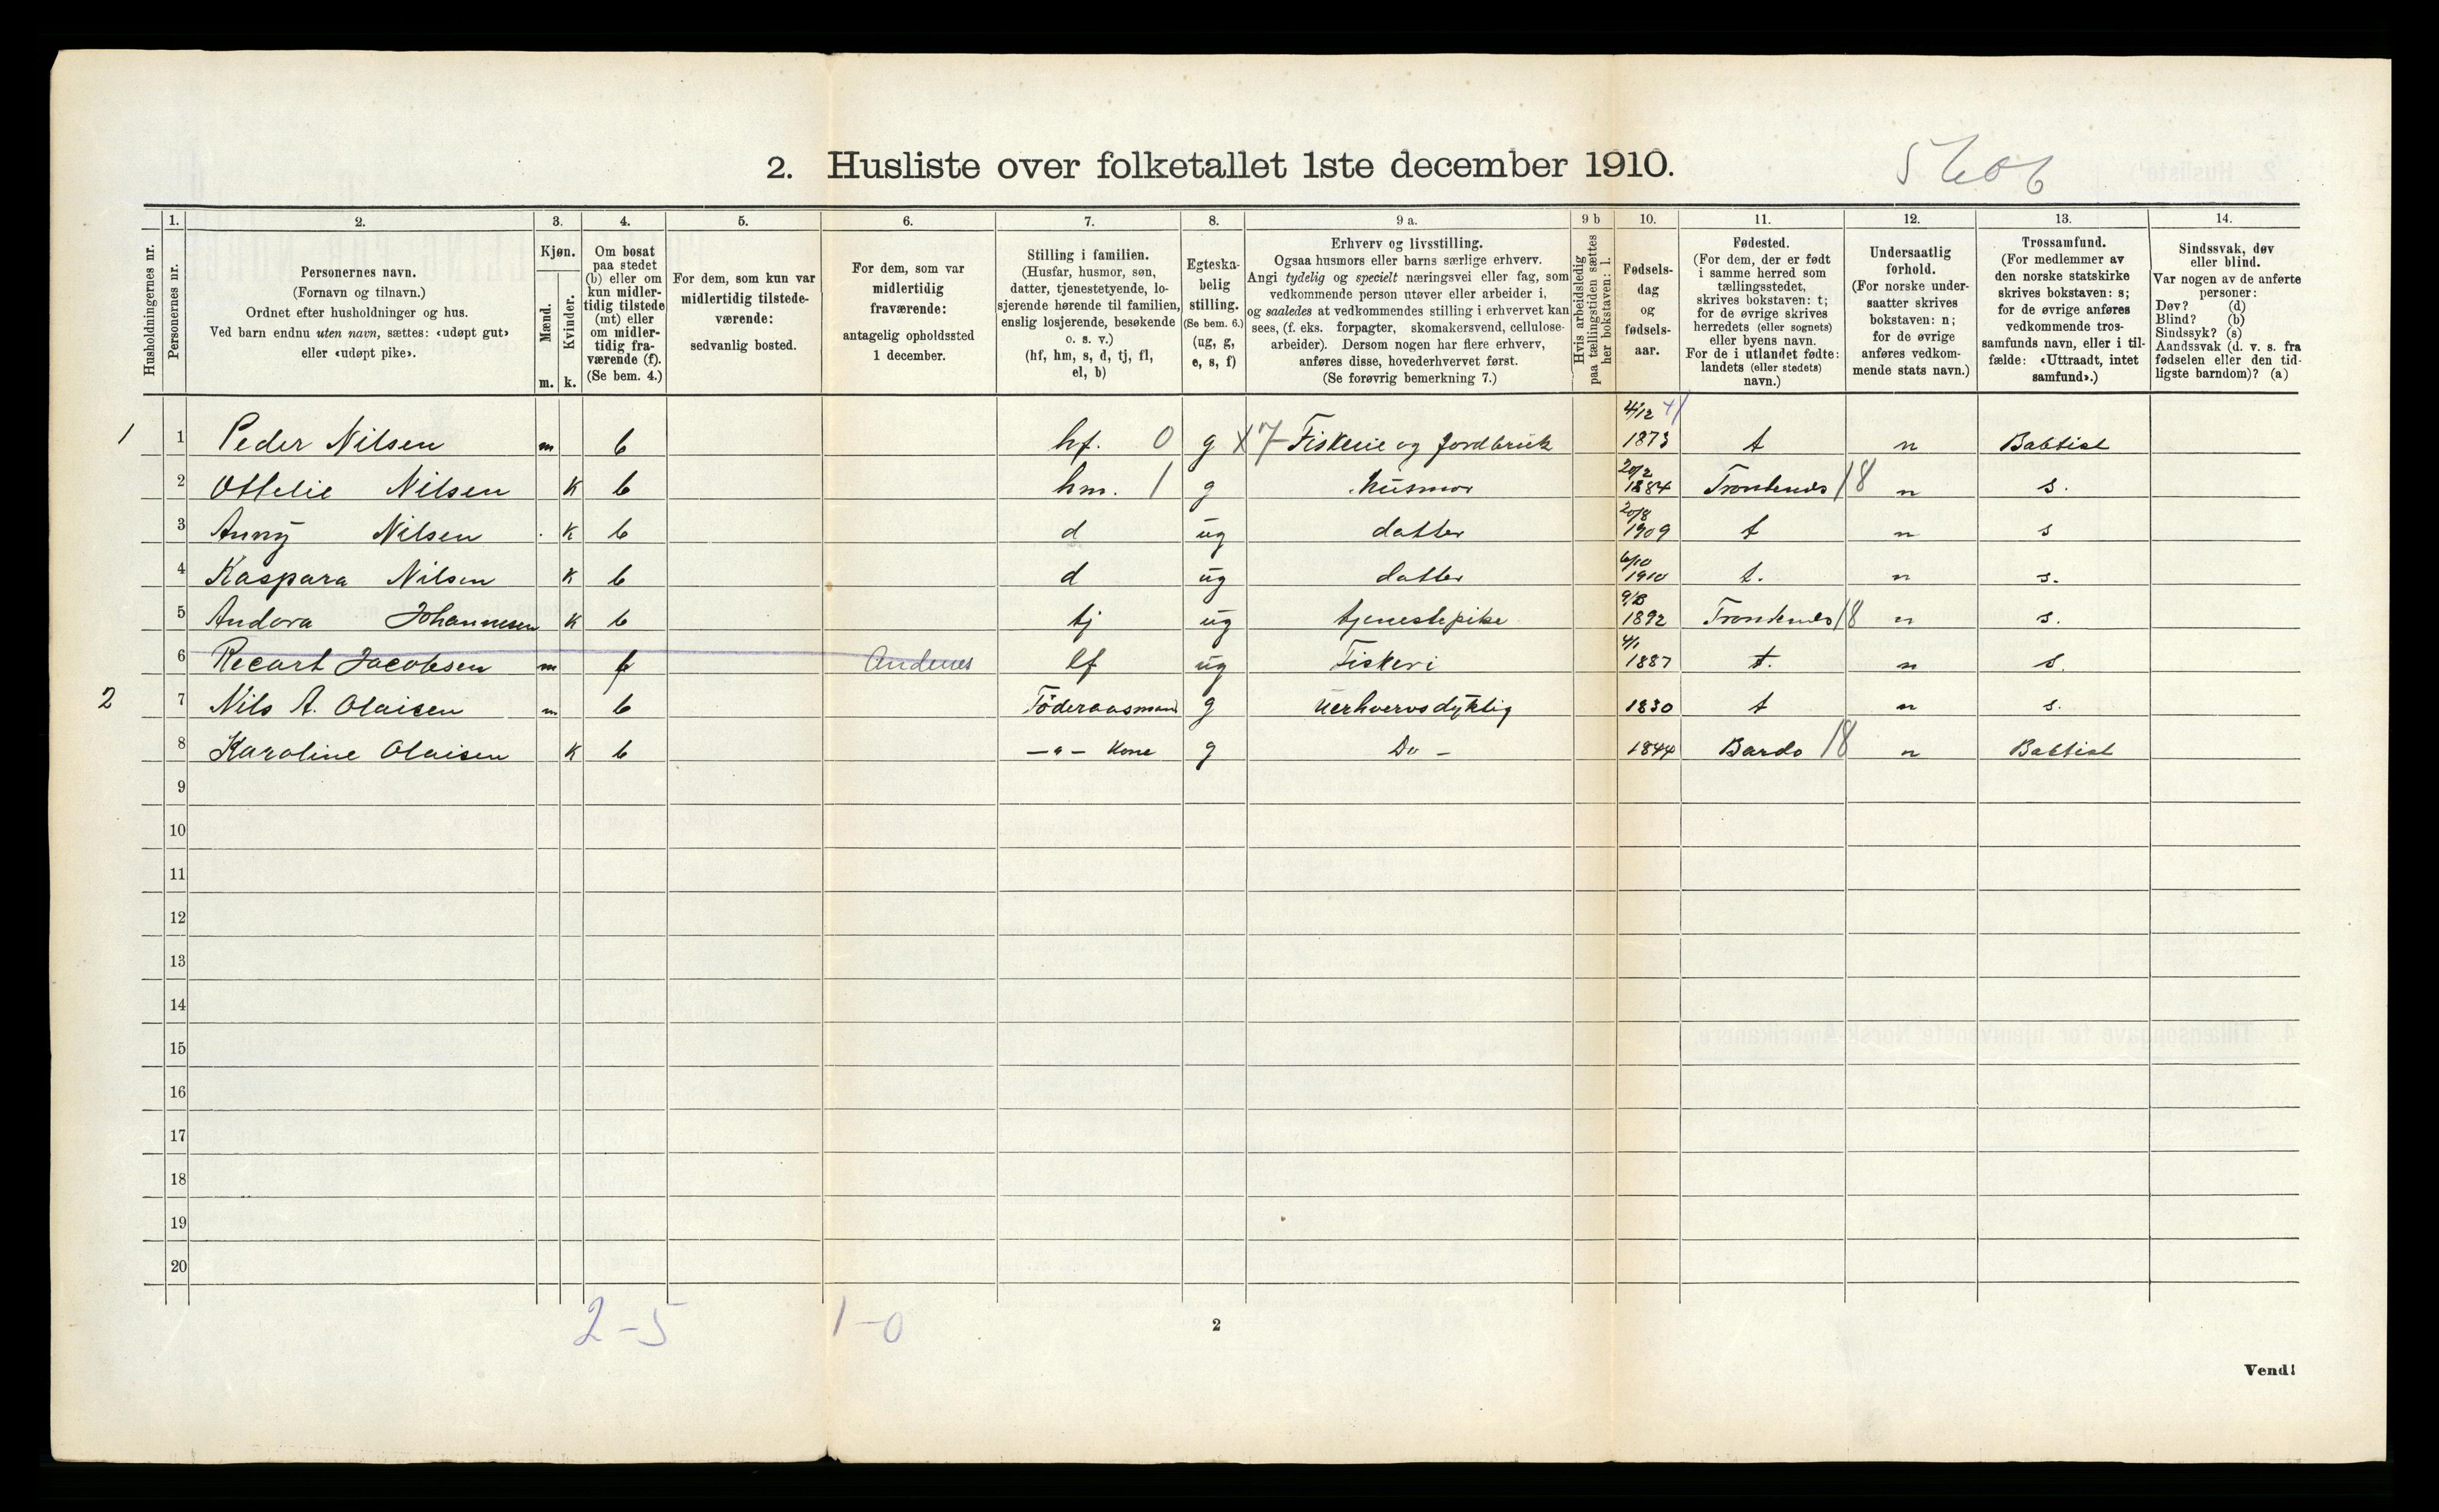 2. Husliste over folketallet 1ste december 1910.
1. 2. 3. 4. 5. 6. 7. 8. 9 a. 9 b 10. 11. 12. 13. 14.
Husholdningernes nr.
Personernes nr.
Personernes navn.
(Fornavn og tilnavn.)
Ordnet efter husholdninger og hus.
Ved barn endnu uten navn, sættes: «udøpt gut»
eller «udøpt pike».
Kjøn.
Mænd.
Kvinder.
m. k.
Om bosat
paa stedet
(b) eller om
kun midler-
tidig tilstede
(mt) eller
om midler-
tidig fra-
værende (f).
(Se bem. 4.)
For dem, som kun var
midlertidig tilstede-
værende:
sedvanlig bosted.
For dem, som var
midlertidig
fraværende:
antagelig opholdssted
1 december.
Stilling i familien.
(Husfar, husmor, søn,
datter, tjenestetyende, lo-
sjerende hørende til familien,
enslig losjerende, besøkende
o. s. v.)
(hf, hm, s, d, tj, fl,
el, b)
Egteska-
belig
stilling.
(Se bem. 6.)
(ug, g,
e, s, f)
Erhverv og livsstilling.
Ogsaa husmors eller barns særlige erhverv.
Angi tydelig og specielt næringsvei eller fag, som
vedkommende person utøver eller arbeider i,
og saaledes at vedkommendes stilling i erhvervet kan
sees, (f. eks. forpagter, skomakersvend, cellulose-
arbeider). Dersom nogen har flere erhverv,
anføres disse, hovederhvervet først.
(Se forøvrig bemerkning 7.)
Hvis arbeidsledig
paa tællingstiden sættes
her bokstaven: l.
Fødsels-
dag
og
fødsels-
aar.
Fødested.
(For dem, der er født
i samme herred som
tællingsstedet,
skrives bokstaven: t;
for de øvrige skrives
herredets (eller sognets)
eller byens navn.
For de i utlandet fødte:
landets (eller stedets)
navn.)
Undersaatlig
forhold.
(For norske under-
saatter skrives
bokstaven: n;
for de øvrige
anføres vedkom-
mende stats navn.)
Trossamfund.
(For medlemmer av
den norske statskirke
skrives bokstaven: s;
for de øvrige anføres
vedkommende tros-
samfunds navn, eller i til-
fælde: «Uttraadt, intet
samfund».)
Sindssvak, døv
eller blind.
Var nogen av de anførte
personer:
Døv? (d)
Blind? (b)
Sindssyk? (s)
Aandssvak (d. v. s. fra
fødselen eller den tid-
ligste barndom)? (a)
1 1 Peder Nilsen m b hf. 0 g X 7 Fiskerie og Jordbruk 4/12 1873 t n Babtist
2 Ottelie Nilsen K b hm. 1 g husmor 20/2 1884 Trondenes 18 n s.
3 Anny Nilsen K b d ug datter 20/8 1909 t n s
4 Kaspara Nilsen K b d ug datter 6/10 1910 t. n s.
5 Andora Johannesen K b tj ug tjenestepike 1892 Trondenes 18 n s.
6 Recart Jacobsen m f Andenes lf ug Fiskeri 4/1 1887 t. n s.
2 7 Nils A. Olaisen m b Föderaasmand g Uerhvervsdyktig 1830 t n s.
8 Karoline Olaisen K b -"- Kone g Do - 1844 Bardo 18 n Babtist
9
10
11
12
13
14
15
16
17
18
19
20
2-5 1-0
2
Vend!